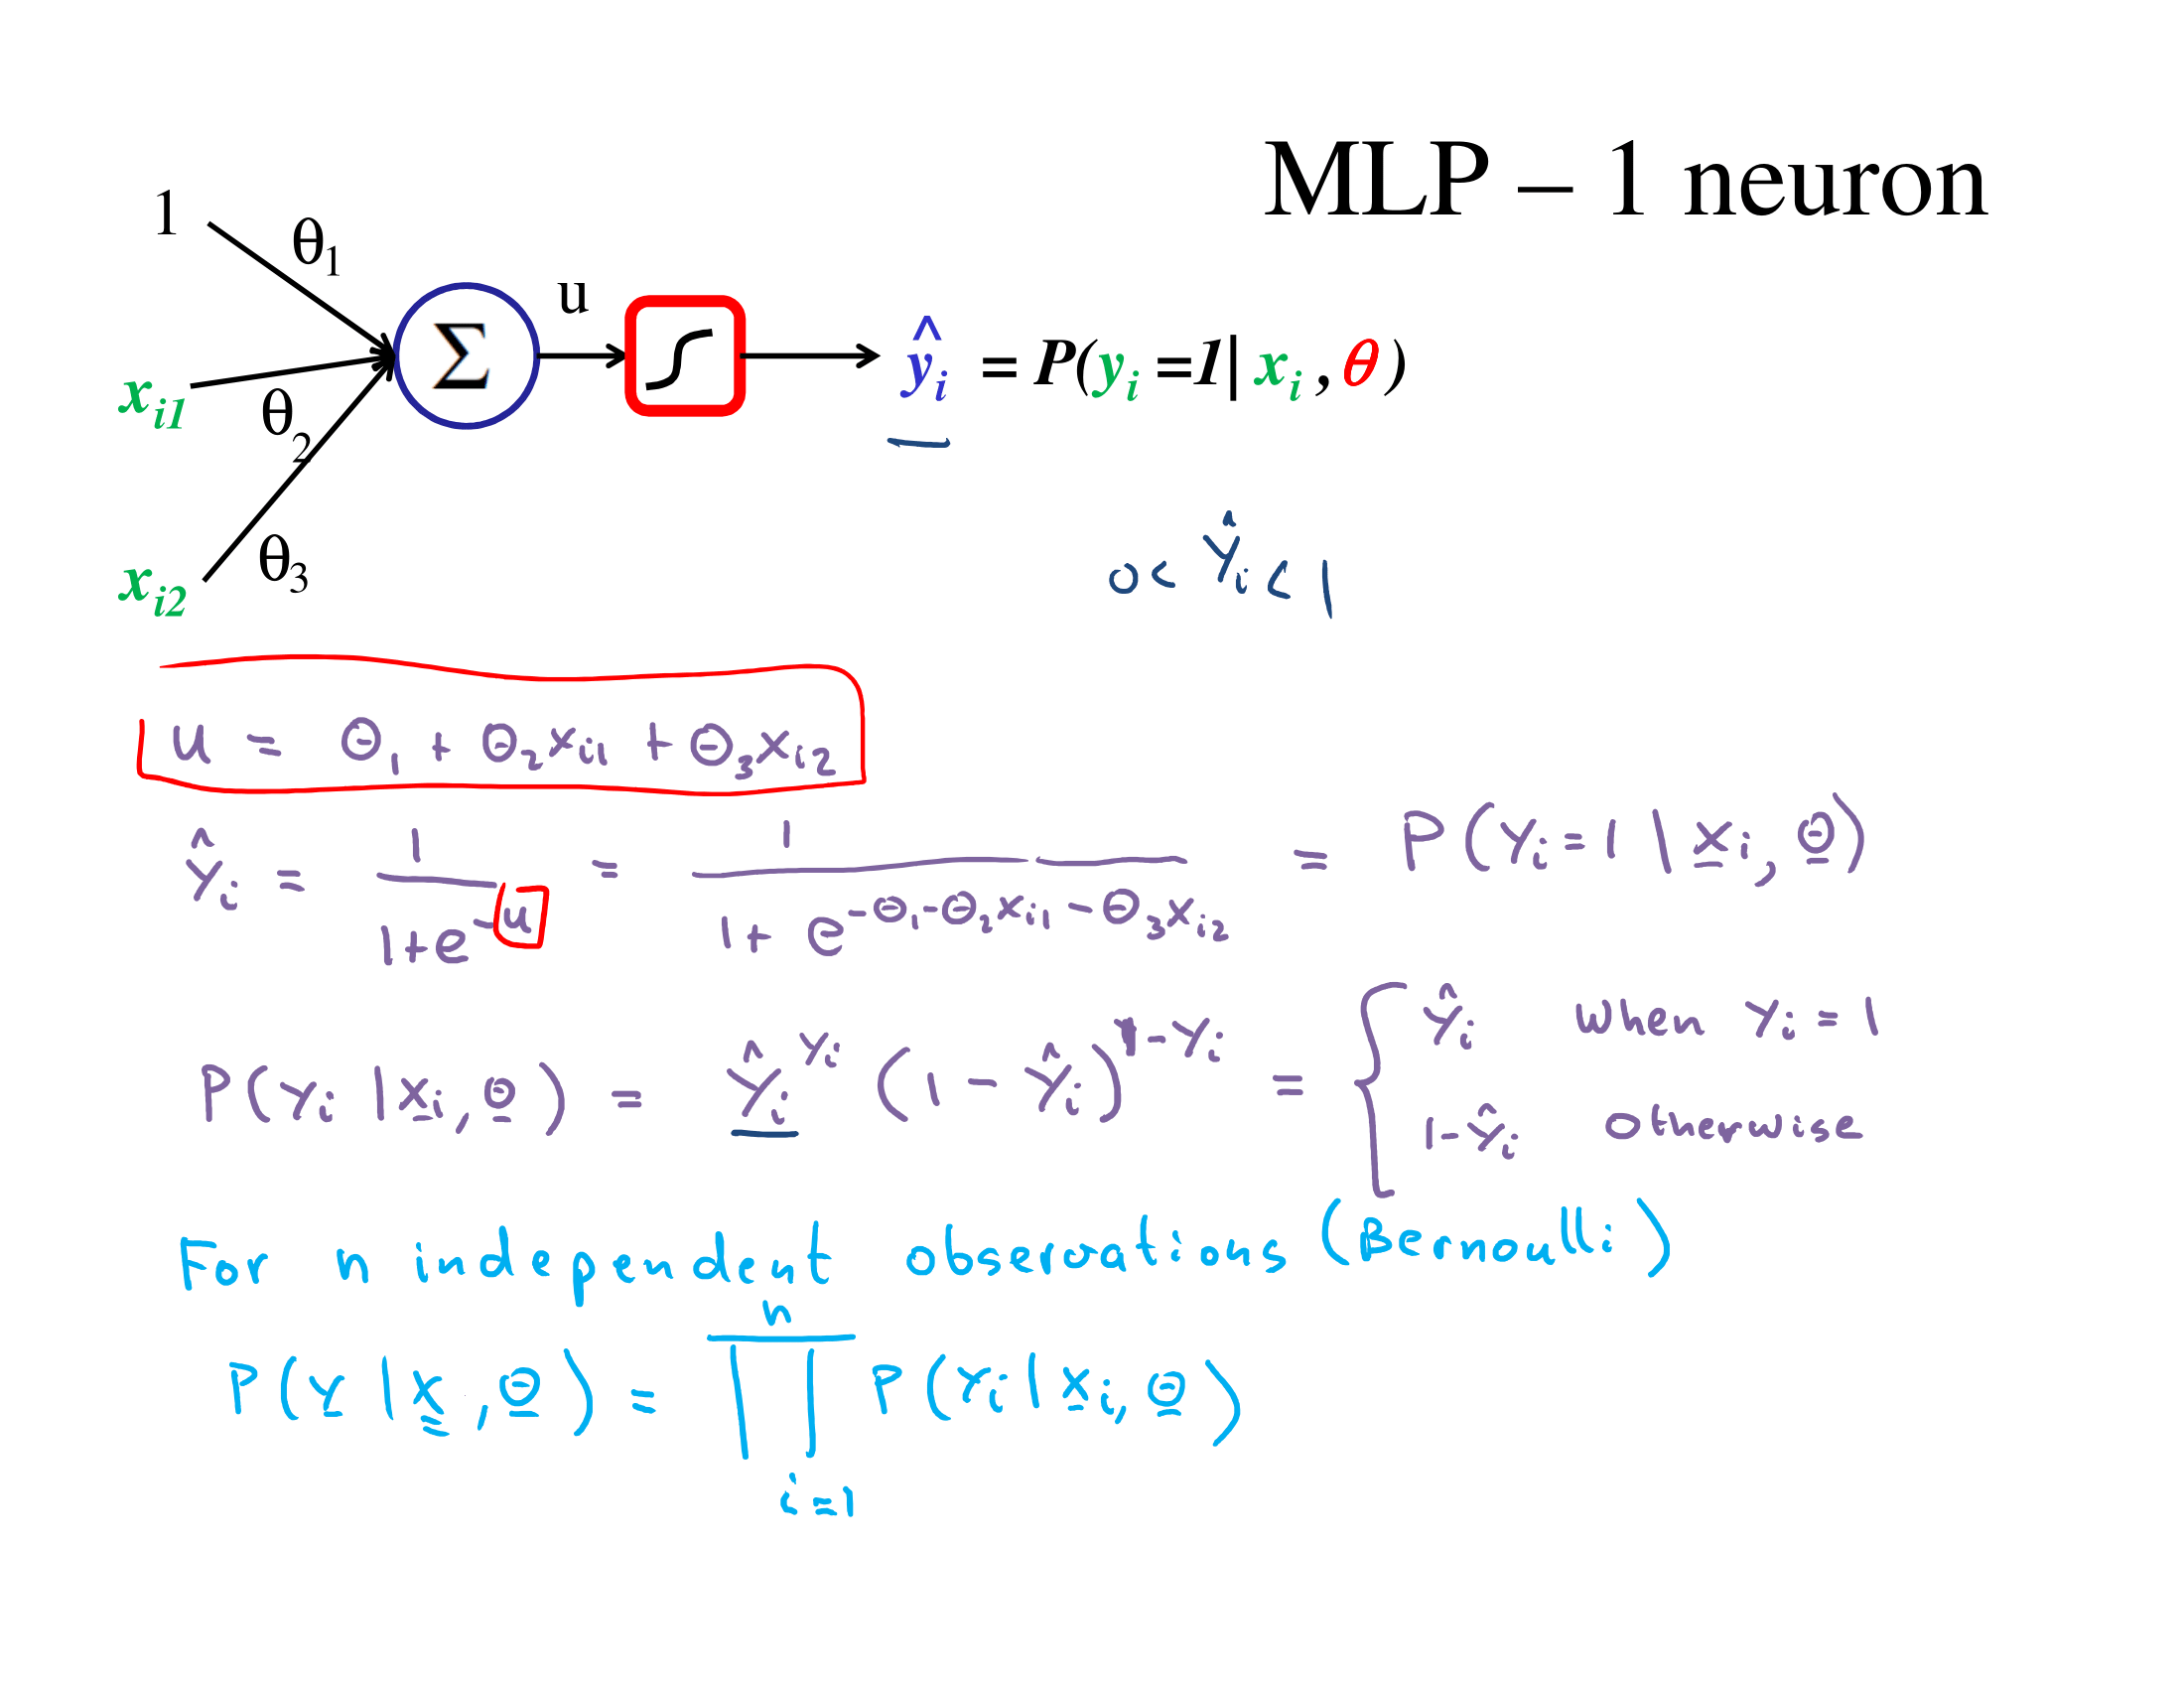 MLP – 1 neuron
1
θ1
u
Σ
ŷi = P(yi =1| xi , θ)
xi1
θ2
θ3
xi2
0 < ŷi < 1
u = θ1 + θ2 xi1 + θ3 xi2
ŷi = 1/(1+e^-u) = 1/(1+ e^-θ1-θ2xi1-θ3xi2) = P(yi=1 | xi, θ)
P(yi | xi, θ) = ŷi^yi (1 - ŷi)^1-yi = { ŷi when yi = 1
1-ŷi otherwise
For n independent observations (Bernoulli)
P(y | x, θ) = ∏ i=1 n P(yi | xi, θ)